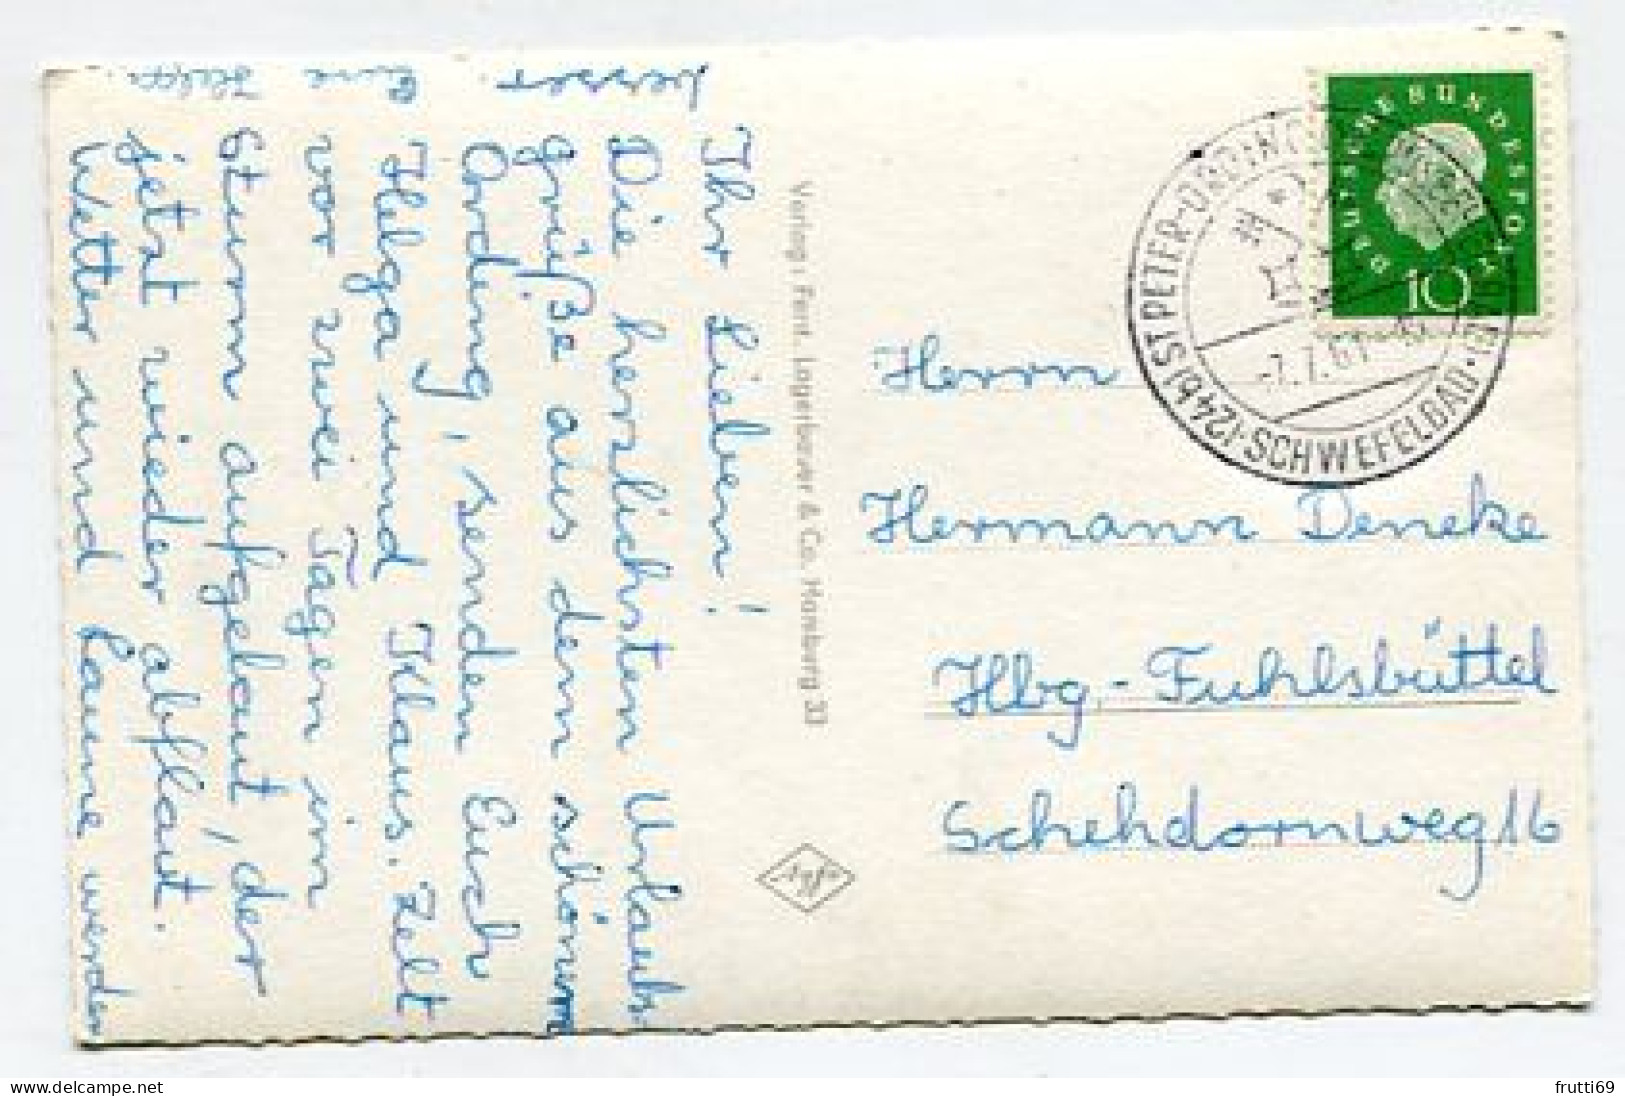 Ihr Lieben!
Die herzlichsten Urlaubs-
grüße aus dem schönen
Ording, senden Euch
Helga und Klaus. Zelt
vor zwei Tagen im
Sturm aufgebaut, der
jetzt wieder abflaut.
Wetter und Laune werden
besser.
Eure
Helga
Verlag: Ferd. Lagerbauer & Co. Hamburg 33
DEUTSCHE BUNDESPOST
10
(24b) ST PETER-ORDING
SCHWEFELBAD
-7.7.61
Herrn
Hermann Deneke
Hbg.-Fuhlsbüttel
Schehdornweg 16
frutti69